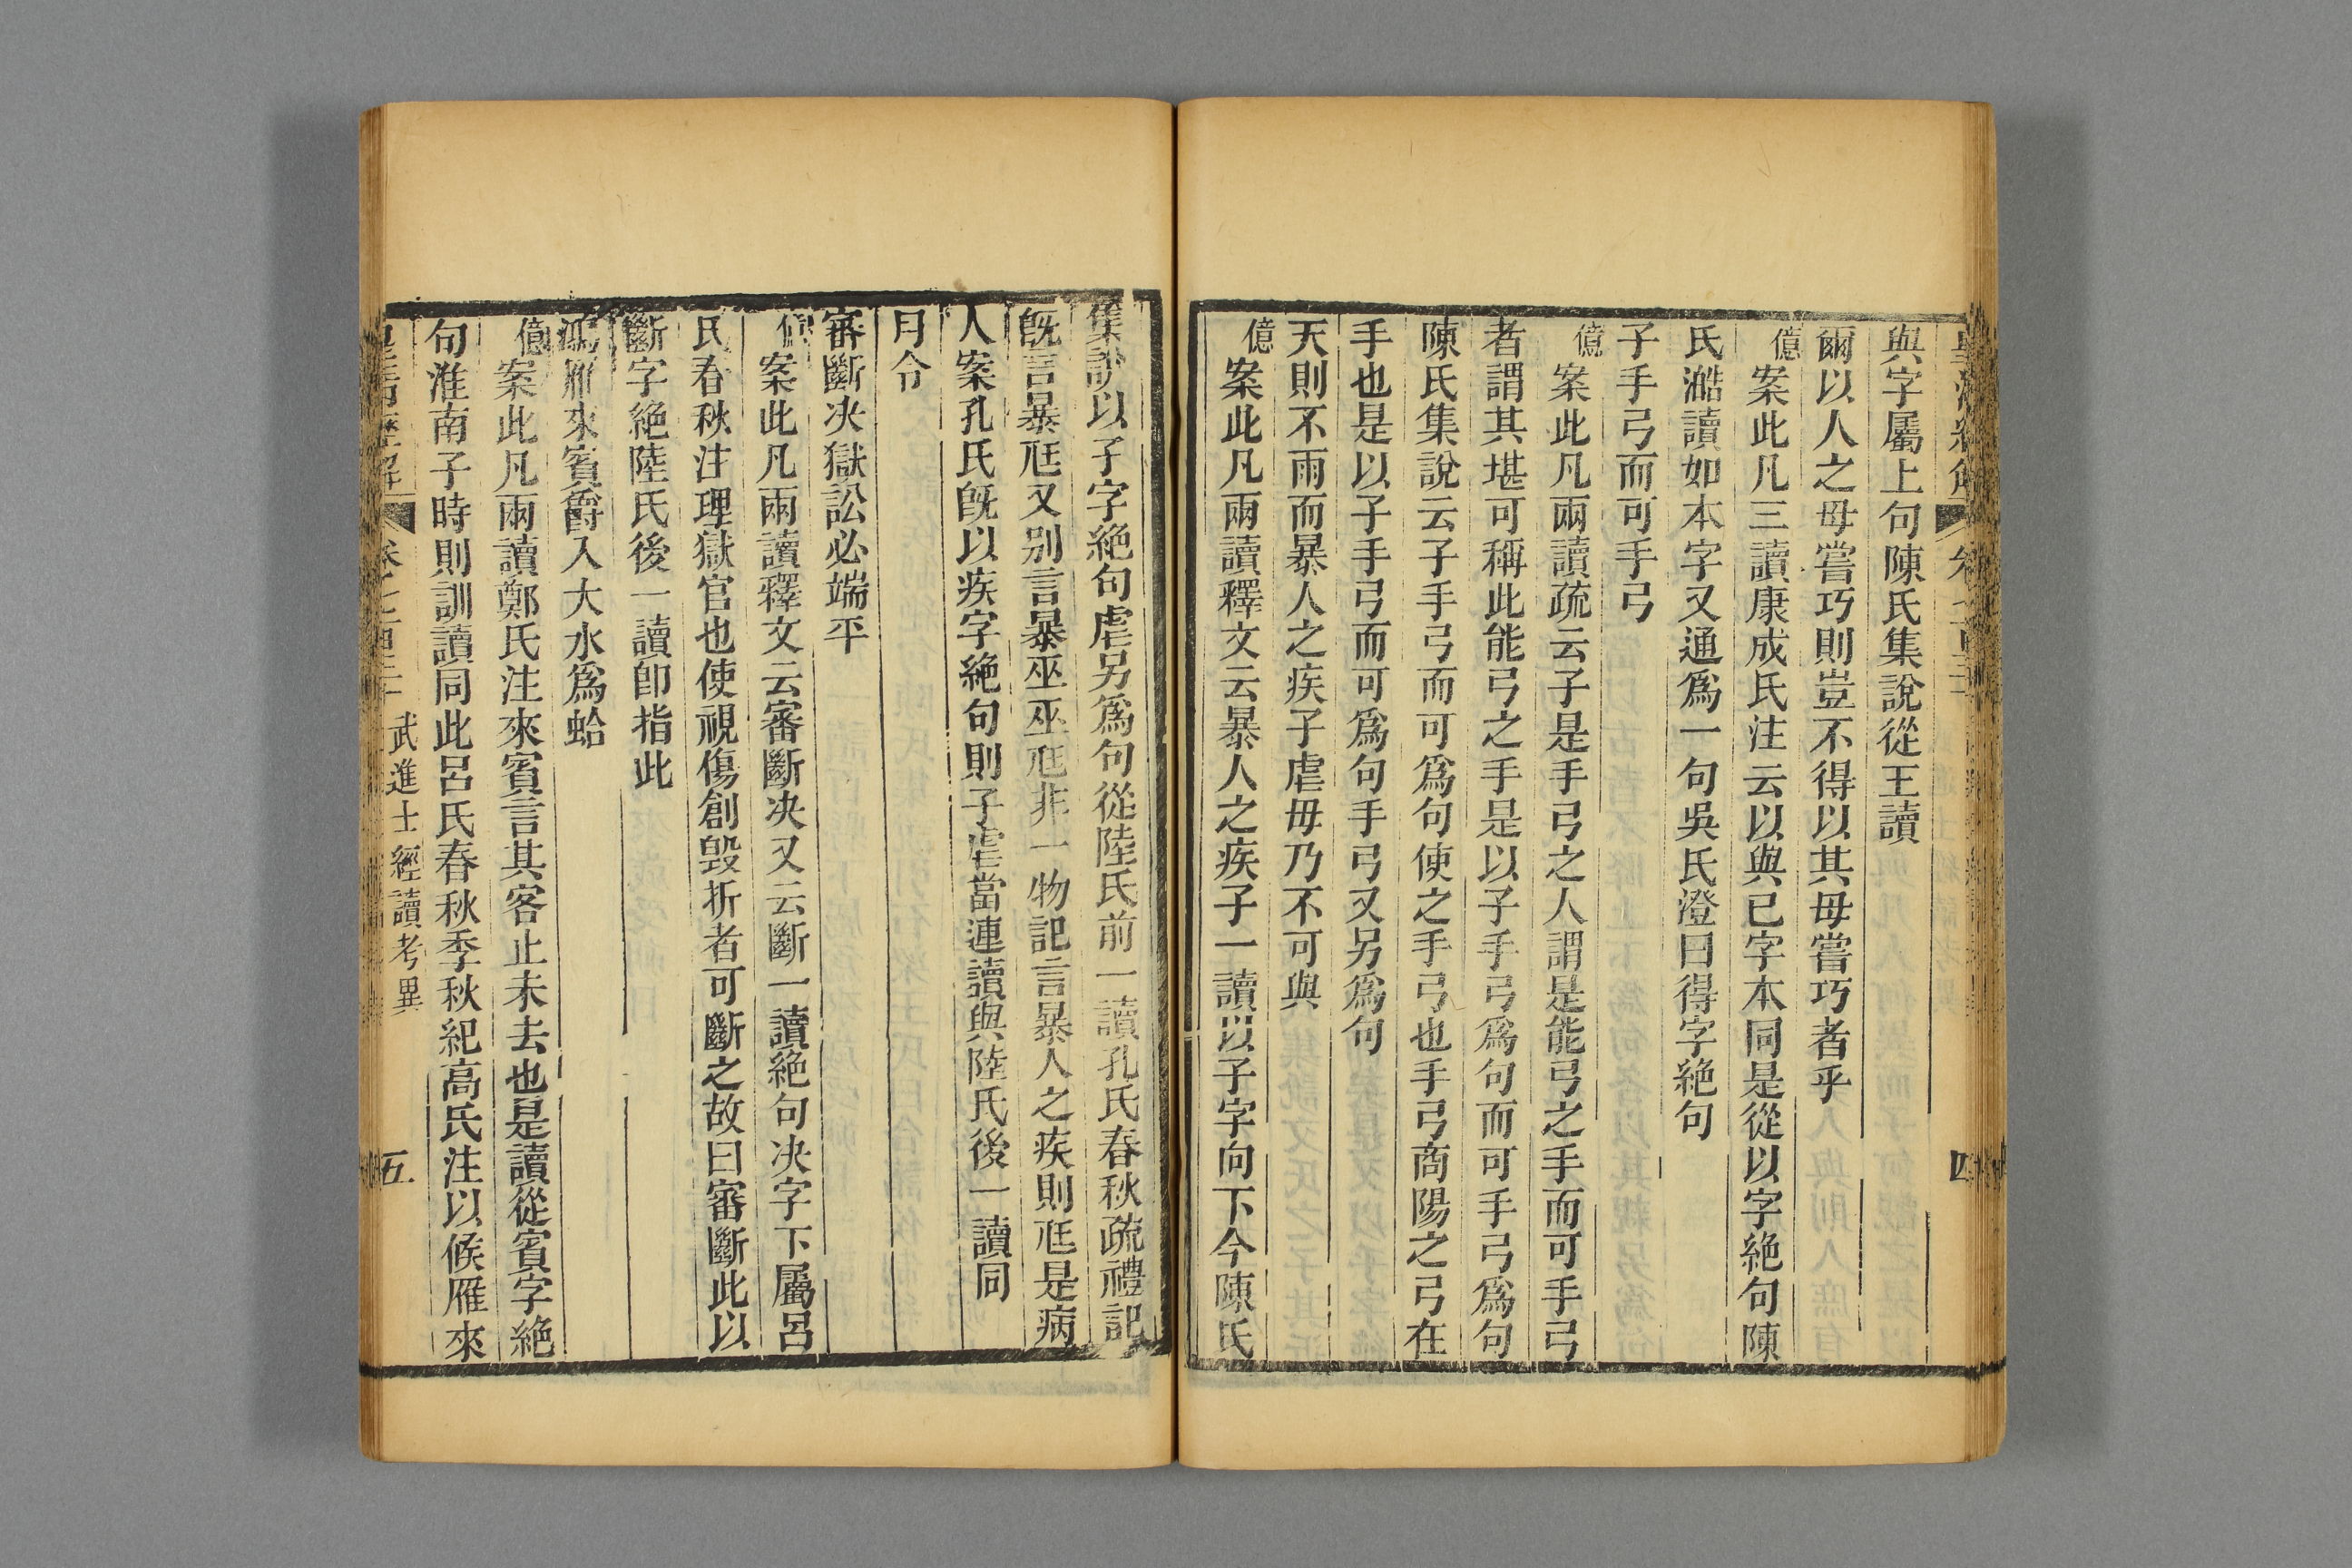 與字屬上句陳氏集說從王讀
爾以人之母嘗巧則豈不得以其母嘗巧者乎
億案此凡三讀康成氏注云以與已字本同是從以字絶句陳
氏澔讀如本字又通爲一句吳氏澄曰得字絶句
子手弓而可手弓
億案此凡兩讀疏云子是手弓之人謂是能弓之手而可手弓
者謂其堪可稱此能弓之手是以子手弓爲句而可手弓爲句
陳氏集說云子手弓而可爲句使之手弓也手弓商陽之弓在
手也是以子手弓而可爲句手弓又另爲句
天則不雨而暴人之疾子虐毋乃不可與
億案此凡兩讀釋文云暴人之疾子一讀以子字向下今陳氏
集說以子字絶句虐另爲句從陸氏前一讀孔氏春秋疏禮記
旣言暴尫又别言暴巫巫尫非一物記言暴人之疾則尫是病
人案孔氏旣以疾字絶句則子虐當連讀與陸氏後一讀同
月令
審斷决獄訟必端平
億案此凡兩讀釋文云審斷决又云斷一讀絶句决字下屬呂
氏春秋注理獄官也使視傷創毀折者可斷之故曰審斷此以
斷字絶陸氏後一讀卽指此
鴻雁來賓爵入大水爲蛤
億案此凡兩讀鄭氏注來賓言其客止未去也是讀從賓字絶
句淮南子時則訓讀同此呂氏春秋季秋紀高氏注以候雁來
武進士經讀考異
五